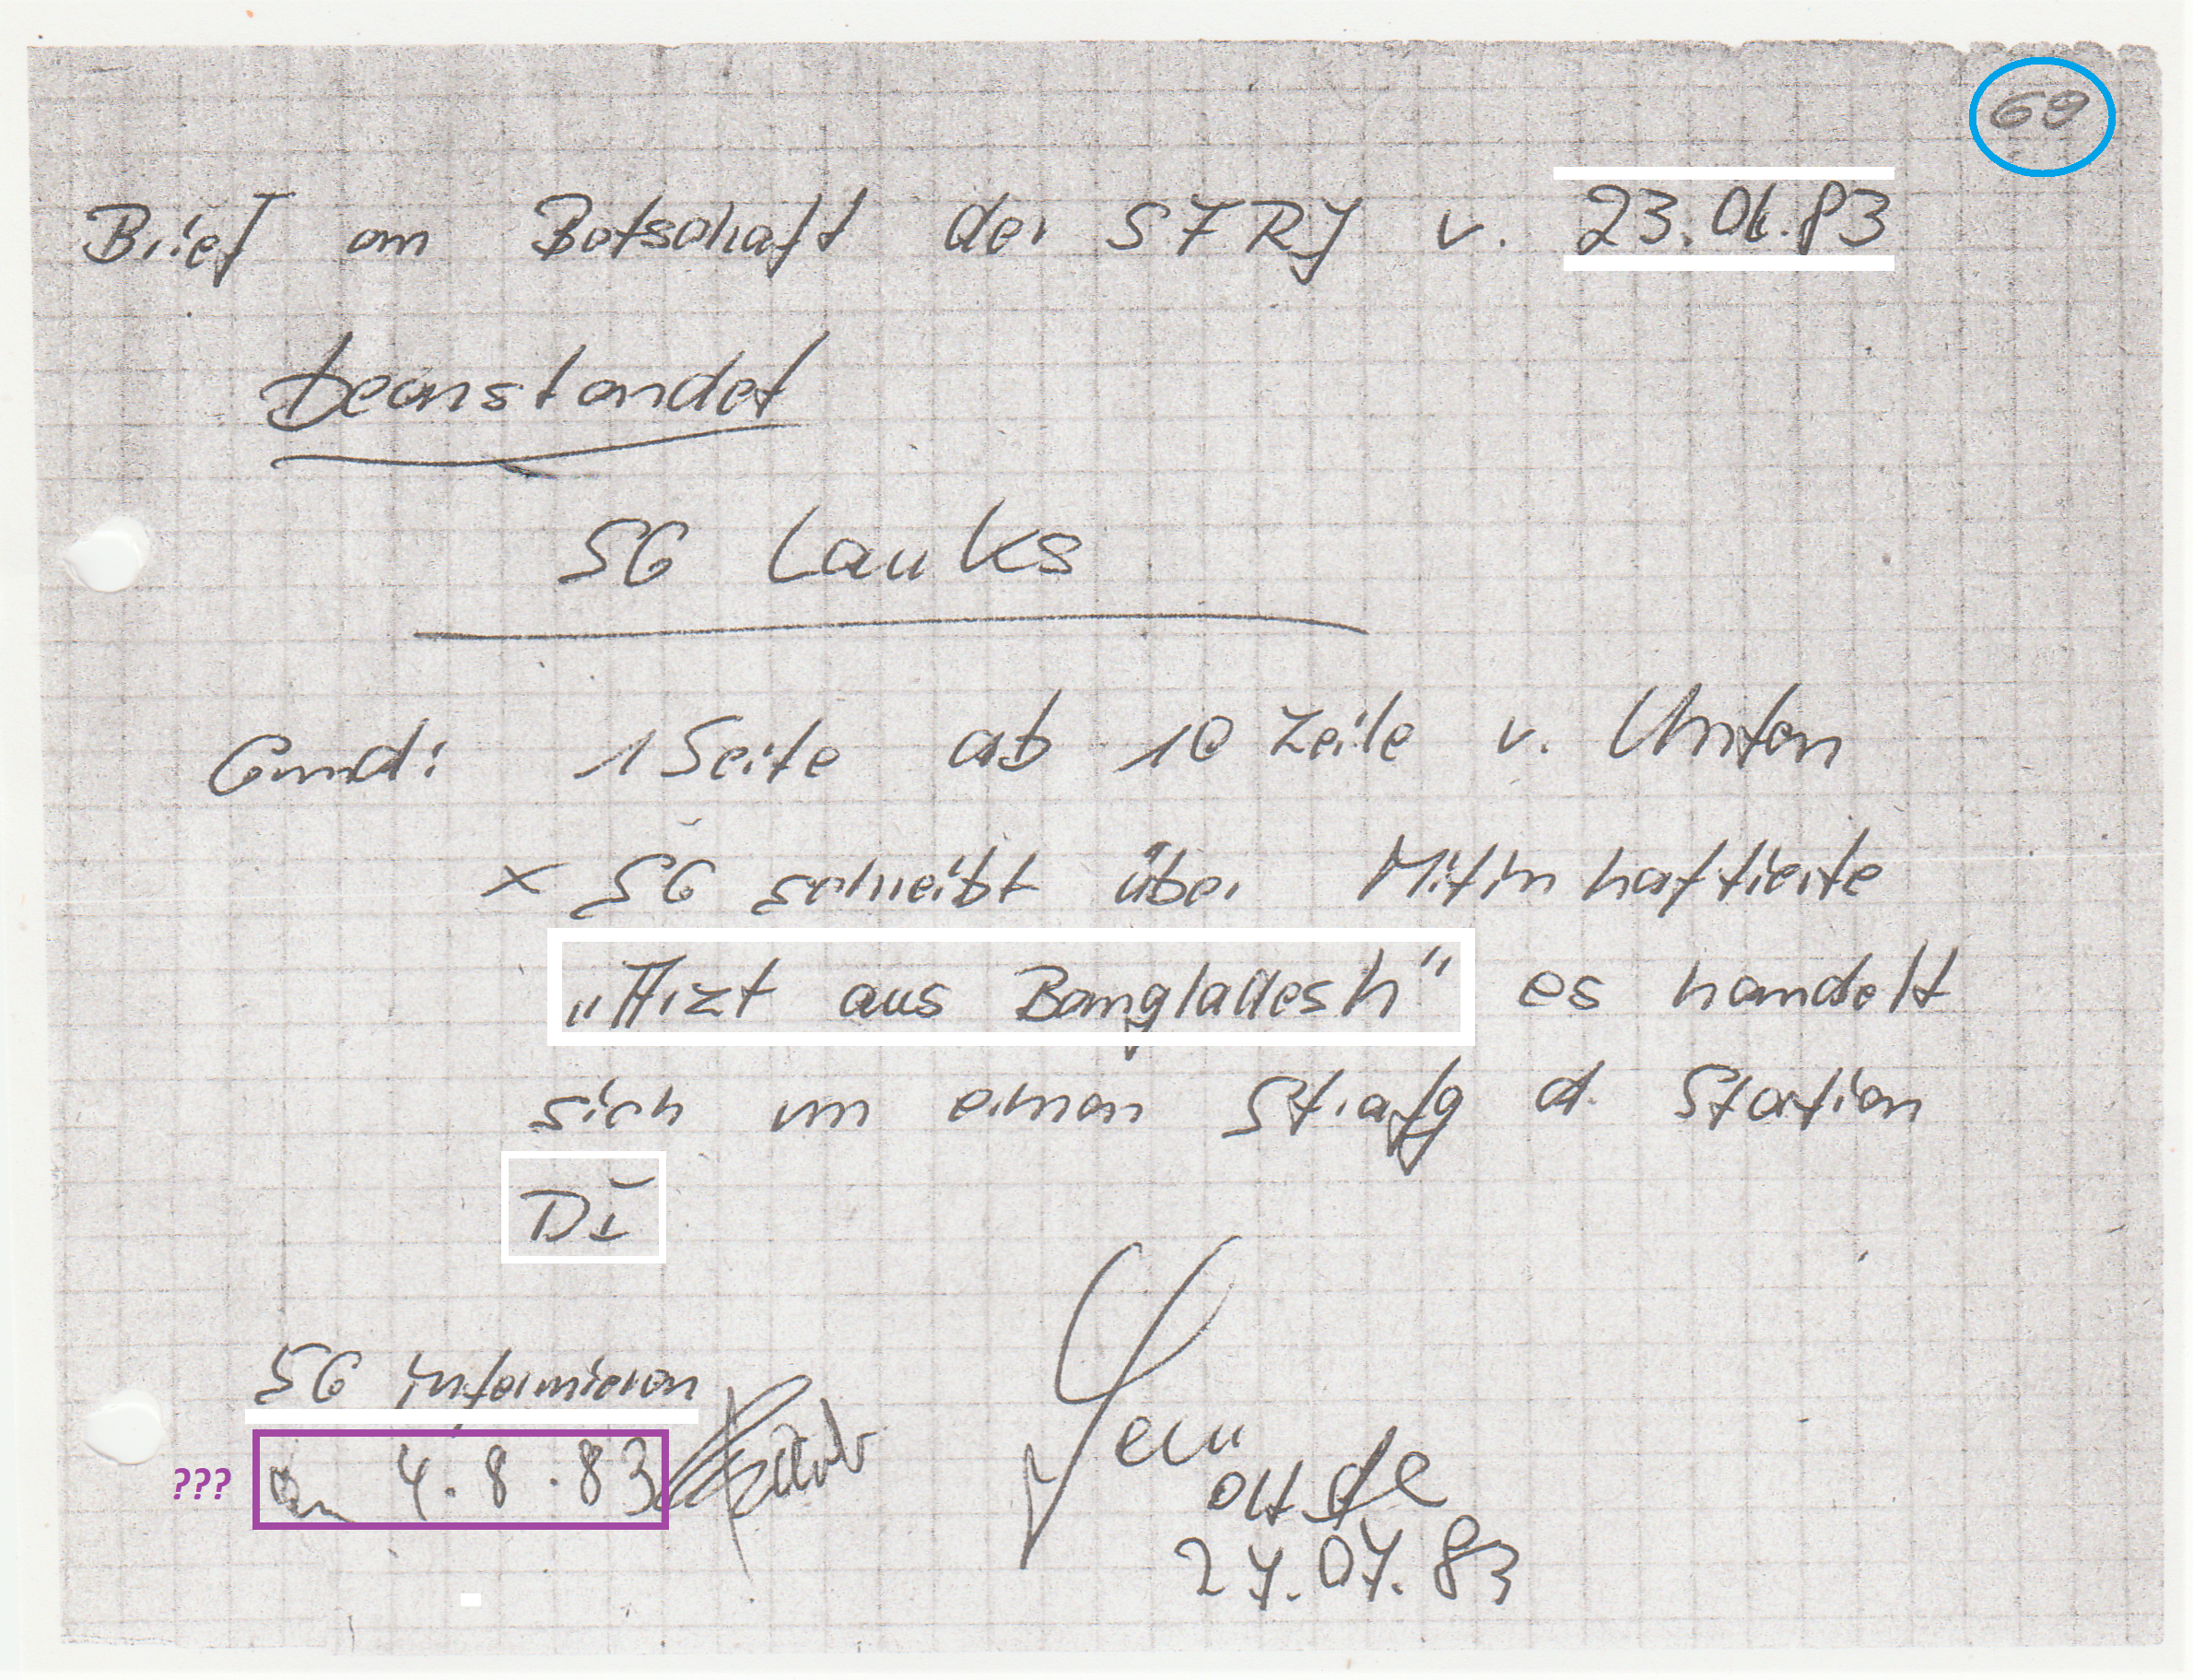 69
Brief an Botschaft der SFRJ v. 23.06.83
beanstandet
SG Lauks
Grund: 1 Seite ab 10 Zeile v. Unten
x SG schreibt über Mitinhaftierte
„Arzt aus Bangladesh" es handelt
sich um einen Strafg d. Station
DI
SG informieren
??? am 4.8.83
27.07.83